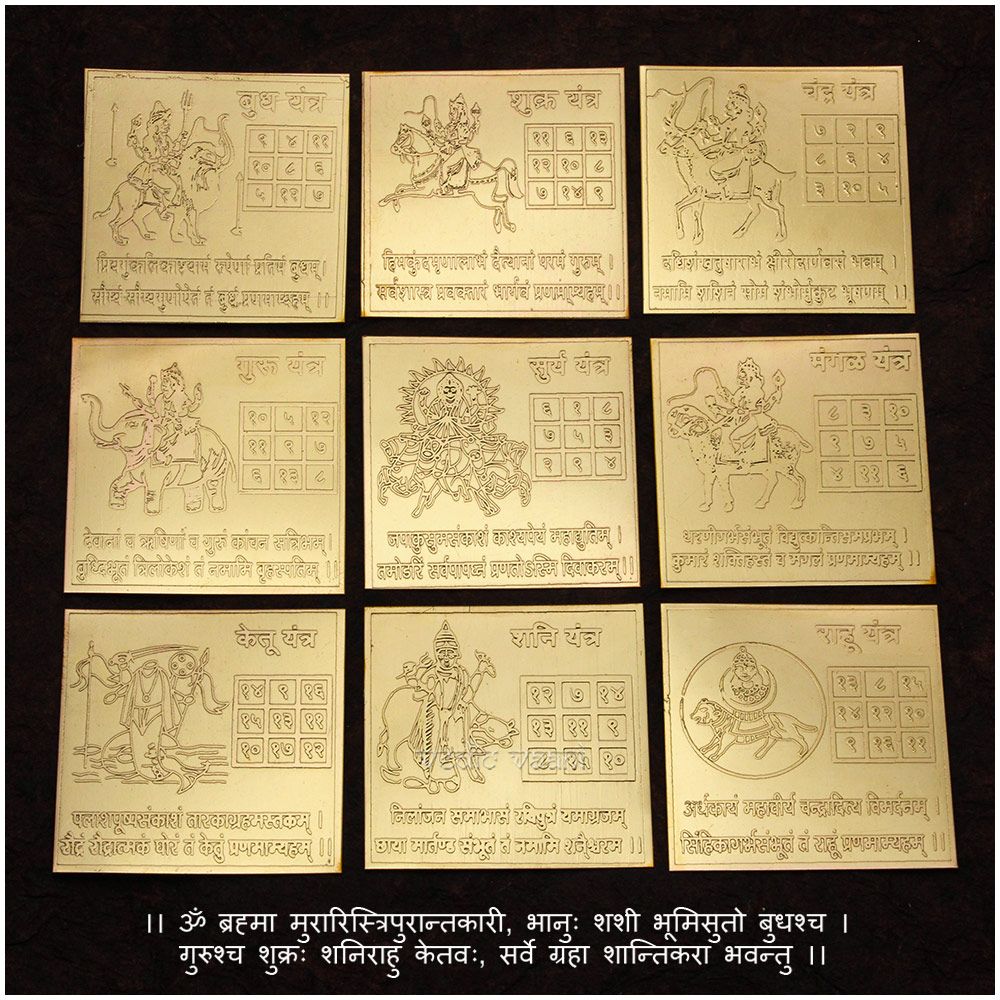 बुध यंत्र
९ ४ ११
१० ८ ६
५ १२ ७
शुक्र यंत्र
११ ६ १३
१२ १० ८
७ १४ ९
हिमकुंदमृणालाभं दैत्यानां परमं गुरुम् ।
सर्वशास्त्र प्रवक्तारं भार्गवं प्रणमाम्यहम् ।।
चंद्र यंत्र
७ २ ९
८ ३ ४
३ १० ५
गुरू यंत्र
१० ५ १२
११ ९ ७
६ १३ ८
देवानां च ऋषिणां च गुरुं कांचन सन्निभम् ।
बुध्दिभूतं त्रिलोकेशं तं नमामि बृहस्पतिम् ।।
सुर्य यंत्र
६ १ ८
७ ५ ३
२ ९ ४
जपाकुसुमसंकाशं काश्यपेयं महाद्युतिम् ।
तमोऽरिं सर्वपापघ्नं प्रणतोऽस्मि दिवाकरम् ।।
मंगळ यंत्र
८ ३ १०
९ ७ ५
४ ११ ६
धरणीगर्भसंभूतं विद्युत्कान्तिसमप्रभम् ।
कुमारं शक्तिहस्तं च मंगलं प्रणमाम्यहम् ।।
केतू यंत्र
१४ ९ १६
१५ १३ ११
१० १७ १२
पलाशपूष्पसंकाशं तारकाग्रहमस्तकम् ।
रौद्रं रौद्रात्मकं घोरं तं केतुं प्रणमाम्यहम् ।।
शनि यंत्र
१२ ७ १४
१३ ११ ९
८ १५ १०
vedic vaani
निलांजन समाभासं रविपुत्रं यमाग्रजम्
छाया मार्तण्ड संभूतं तं नमामि शनैश्वरम् ।।
राहू यंत्र
१३ ८ १५
१४ १२ १०
९ १६ ११
अर्धकायं महावीर्य चन्द्रादित्य विमर्दनम् ।
सिंहिकागर्भसंभूतं तं राहूं प्रणमाम्यहम् ।।
।। ॐ ब्रह्मा मुरारिस्त्रिपुरान्तकारी, भानुः शशी भूमिसुतो बुधश्च ।
गुरुश्च शुक्रः शनिराहु केतवः, सर्वे ग्रहा शान्तिकरा भवन्तु ।।